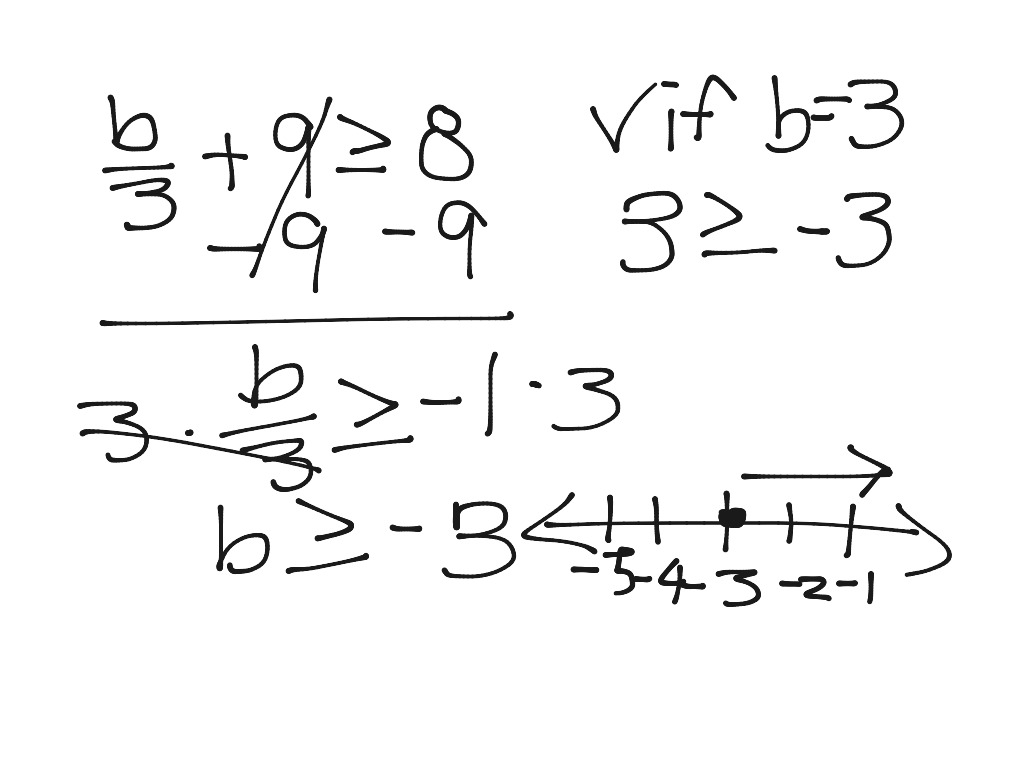 b/3 + 9 ≥ 8
-9 -9
b/3 ≥ -1 · 3
3 ·
b ≥ -3
√ if b=3
3 ≥ -3
-5 -4 -3 -2 -1